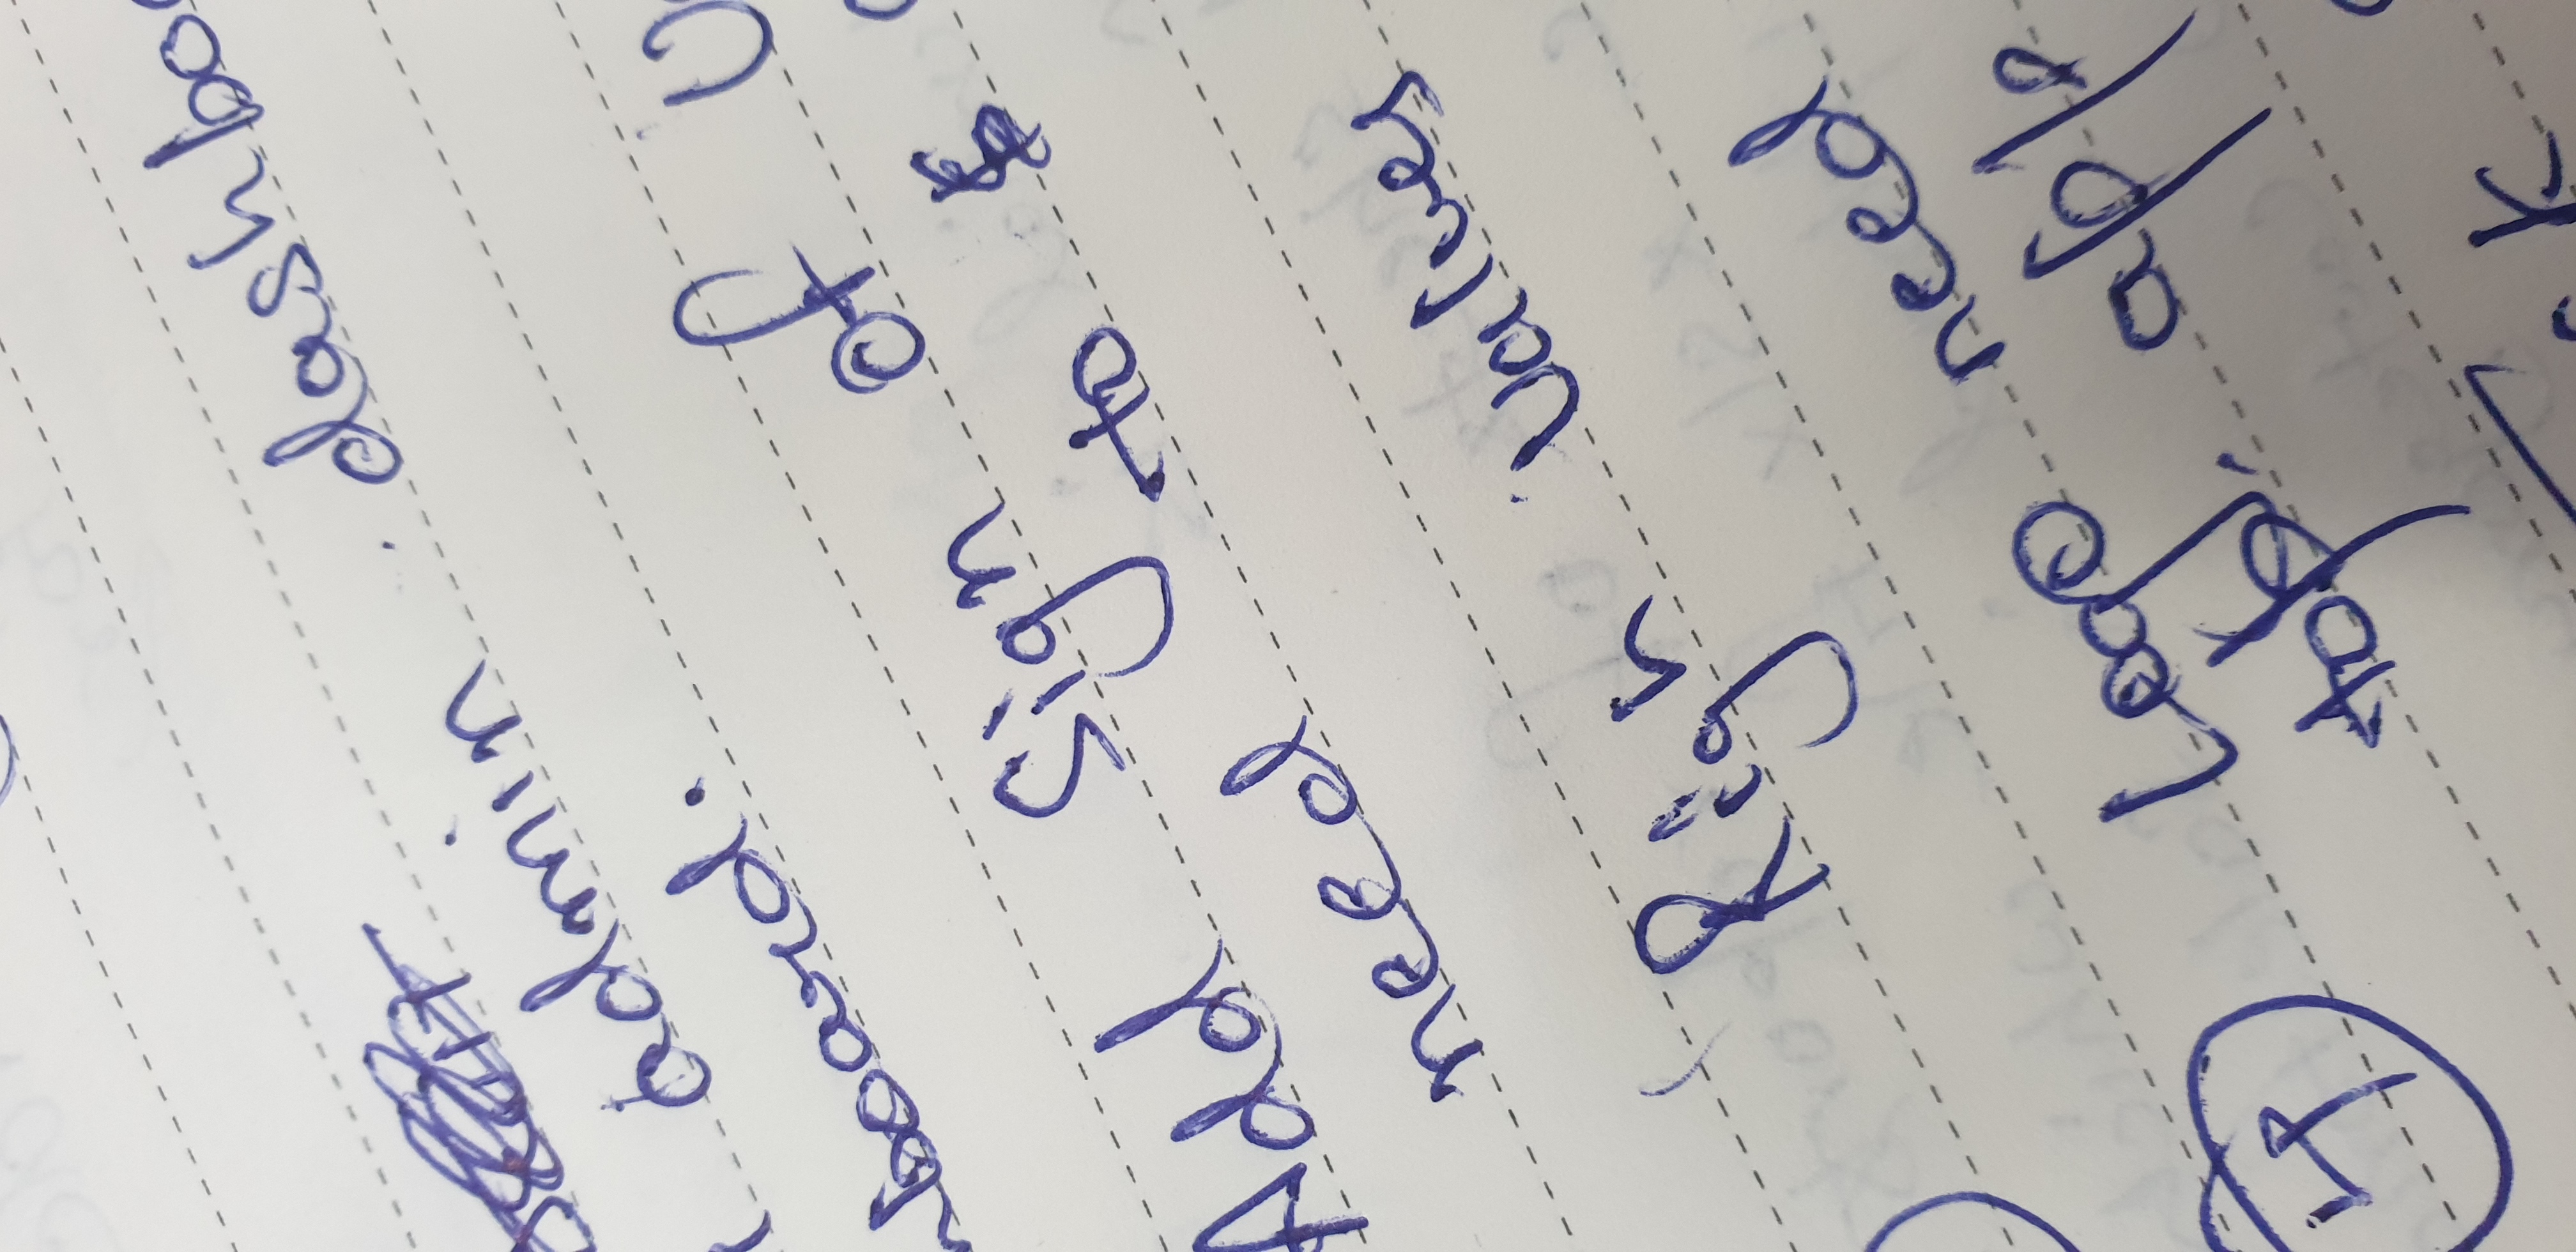 admin dashboa
board.
Add Sign of U
need to
Righ values
4 Logo need
top. app